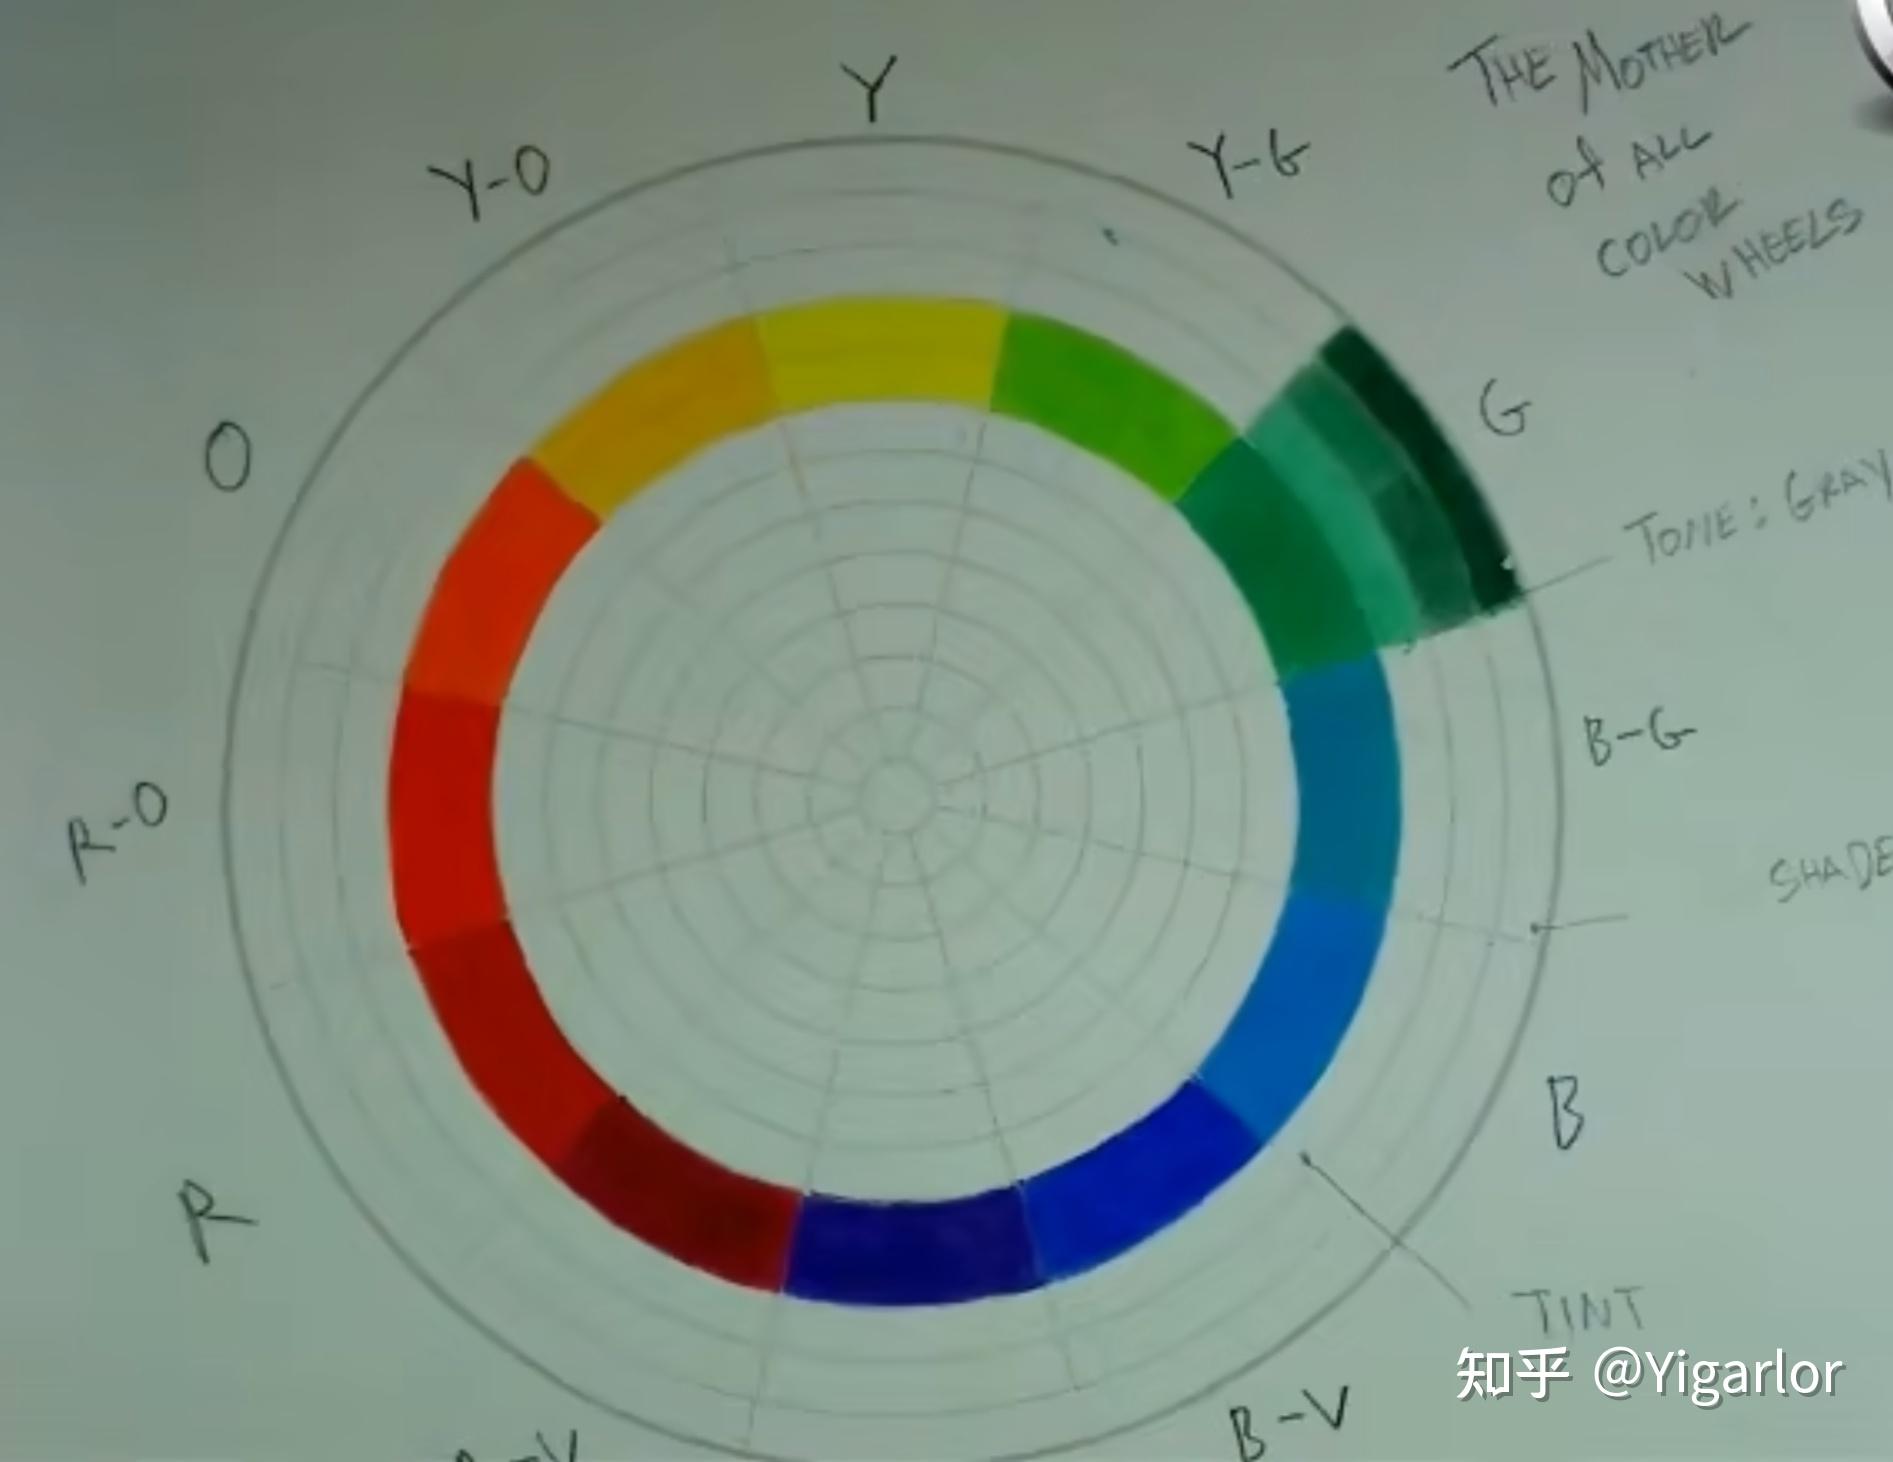 THE MOTHER
of ALL
COLOR
WHEELS
Y
Y-O
Y-G
O
G
TONE: GRAY
R-O
B-G
SHADE
B
R
TINT
B-V
知乎 @Yigarlor